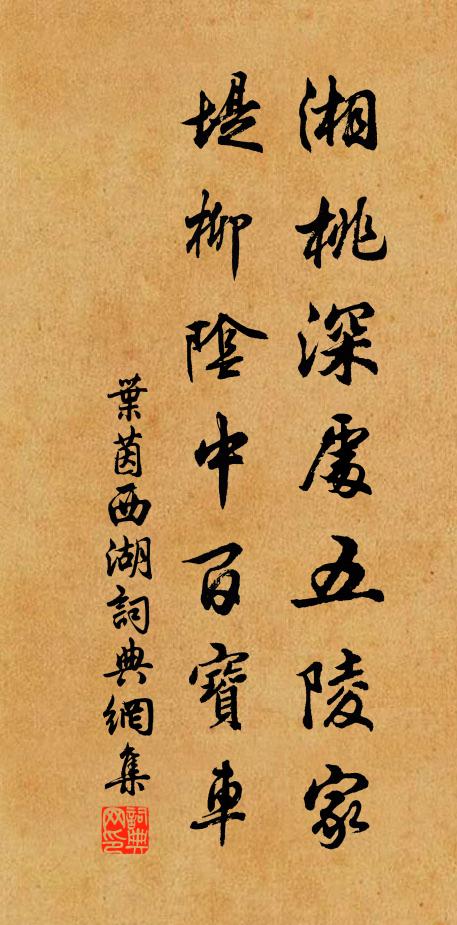 湘桃深處五陵家
堤柳陰中百寶車
葉茵西湖詞典網集
詞典网印